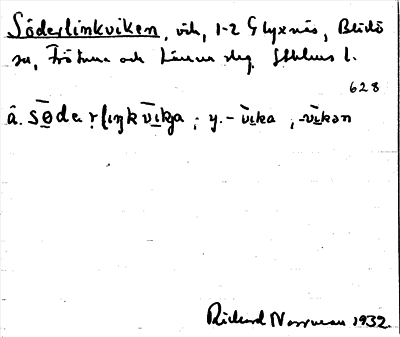 Söderlinkviken, vik, 1-2 Glyxnäs, Blidö
sn, Frötuna och Länna skg. Sthlms l.
628
å. sødeṛliŋkvīkja; y. -vīka, -vīkən
Rickard Norrman 1932.